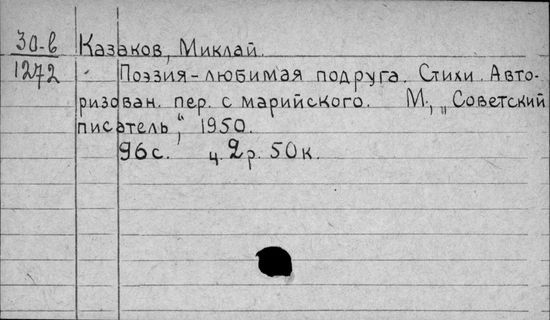 30-в
1272
Казаков, Миклай.
Поэзия-любимая подруга. Стихи. Авто-
ризован. пер. с марийского. М., „Советский
писатель," 1950.
96с. ц. 2р. 50к.